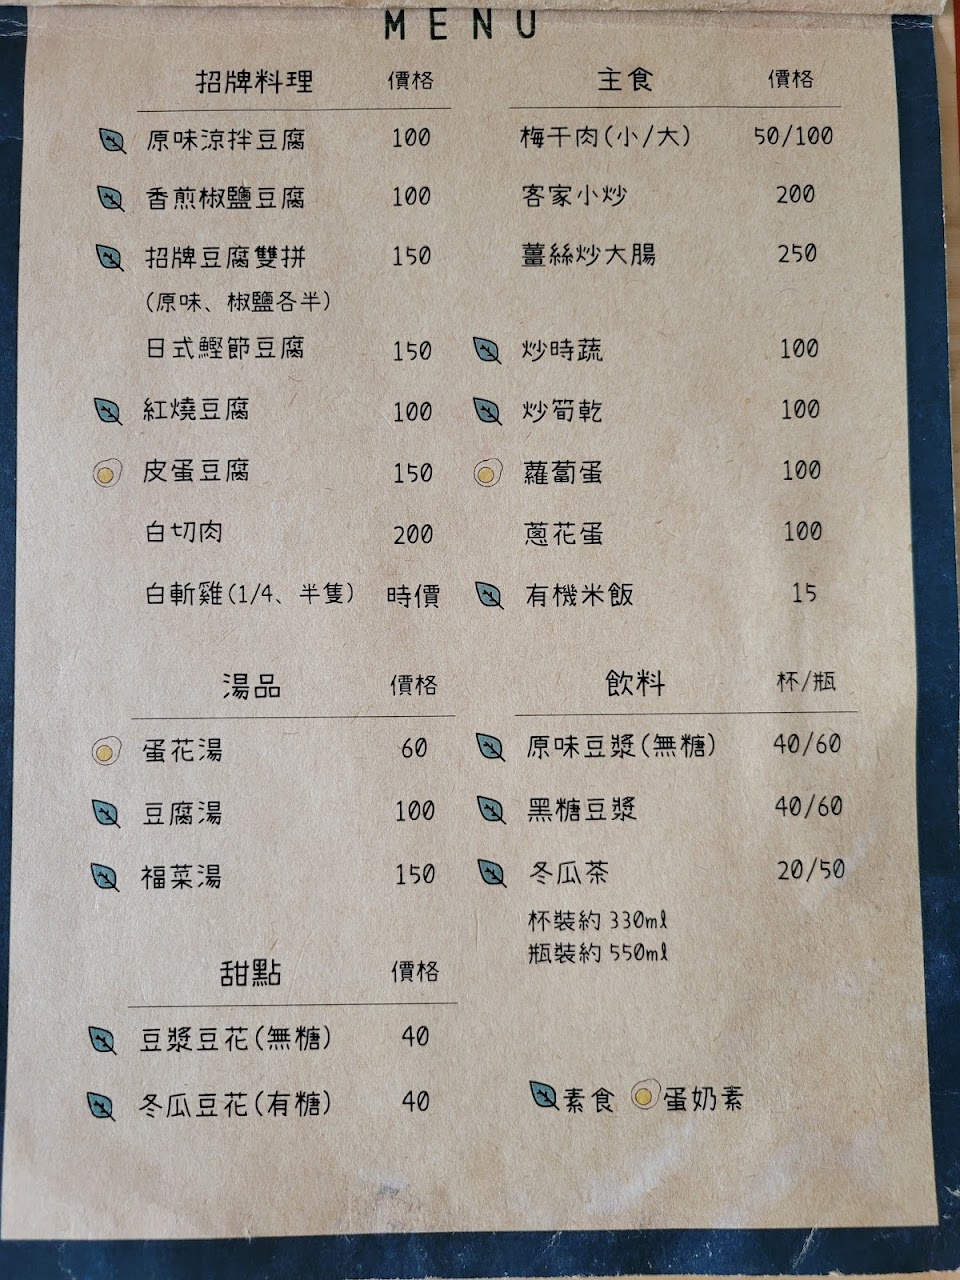 MENU
招牌料理 價格
原味涼拌豆腐 100
香煎椒鹽豆腐 100
招牌豆腐雙拼 150
(原味、椒鹽各半)
日式鰹節豆腐 150
紅燒豆腐 100
皮蛋豆腐 150
白切肉 200
白斬雞(1/4、半隻) 時價
主食 價格
梅干肉(小/大) 50/100
客家小炒 200
薑絲炒大腸 250
炒時蔬 100
炒筍乾 100
蘿蔔蛋 100
蔥花蛋 100
有機米飯 15
湯品 價格
蛋花湯 60
豆腐湯 100
福菜湯 150
飲料 杯/瓶
原味豆漿(無糖) 40/60
黑糖豆漿 40/60
冬瓜茶 20/50
杯裝約 330ml
瓶裝約 550ml
甜點 價格
豆漿豆花(無糖) 40
冬瓜豆花(有糖) 40
素食 蛋奶素